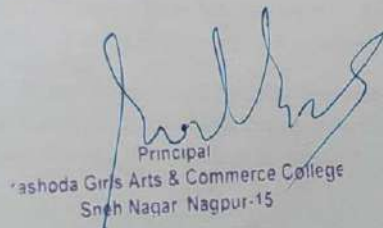 Principal
ashoda Girls Arts & Commerce College
Sneh Nagar Nagpur-15